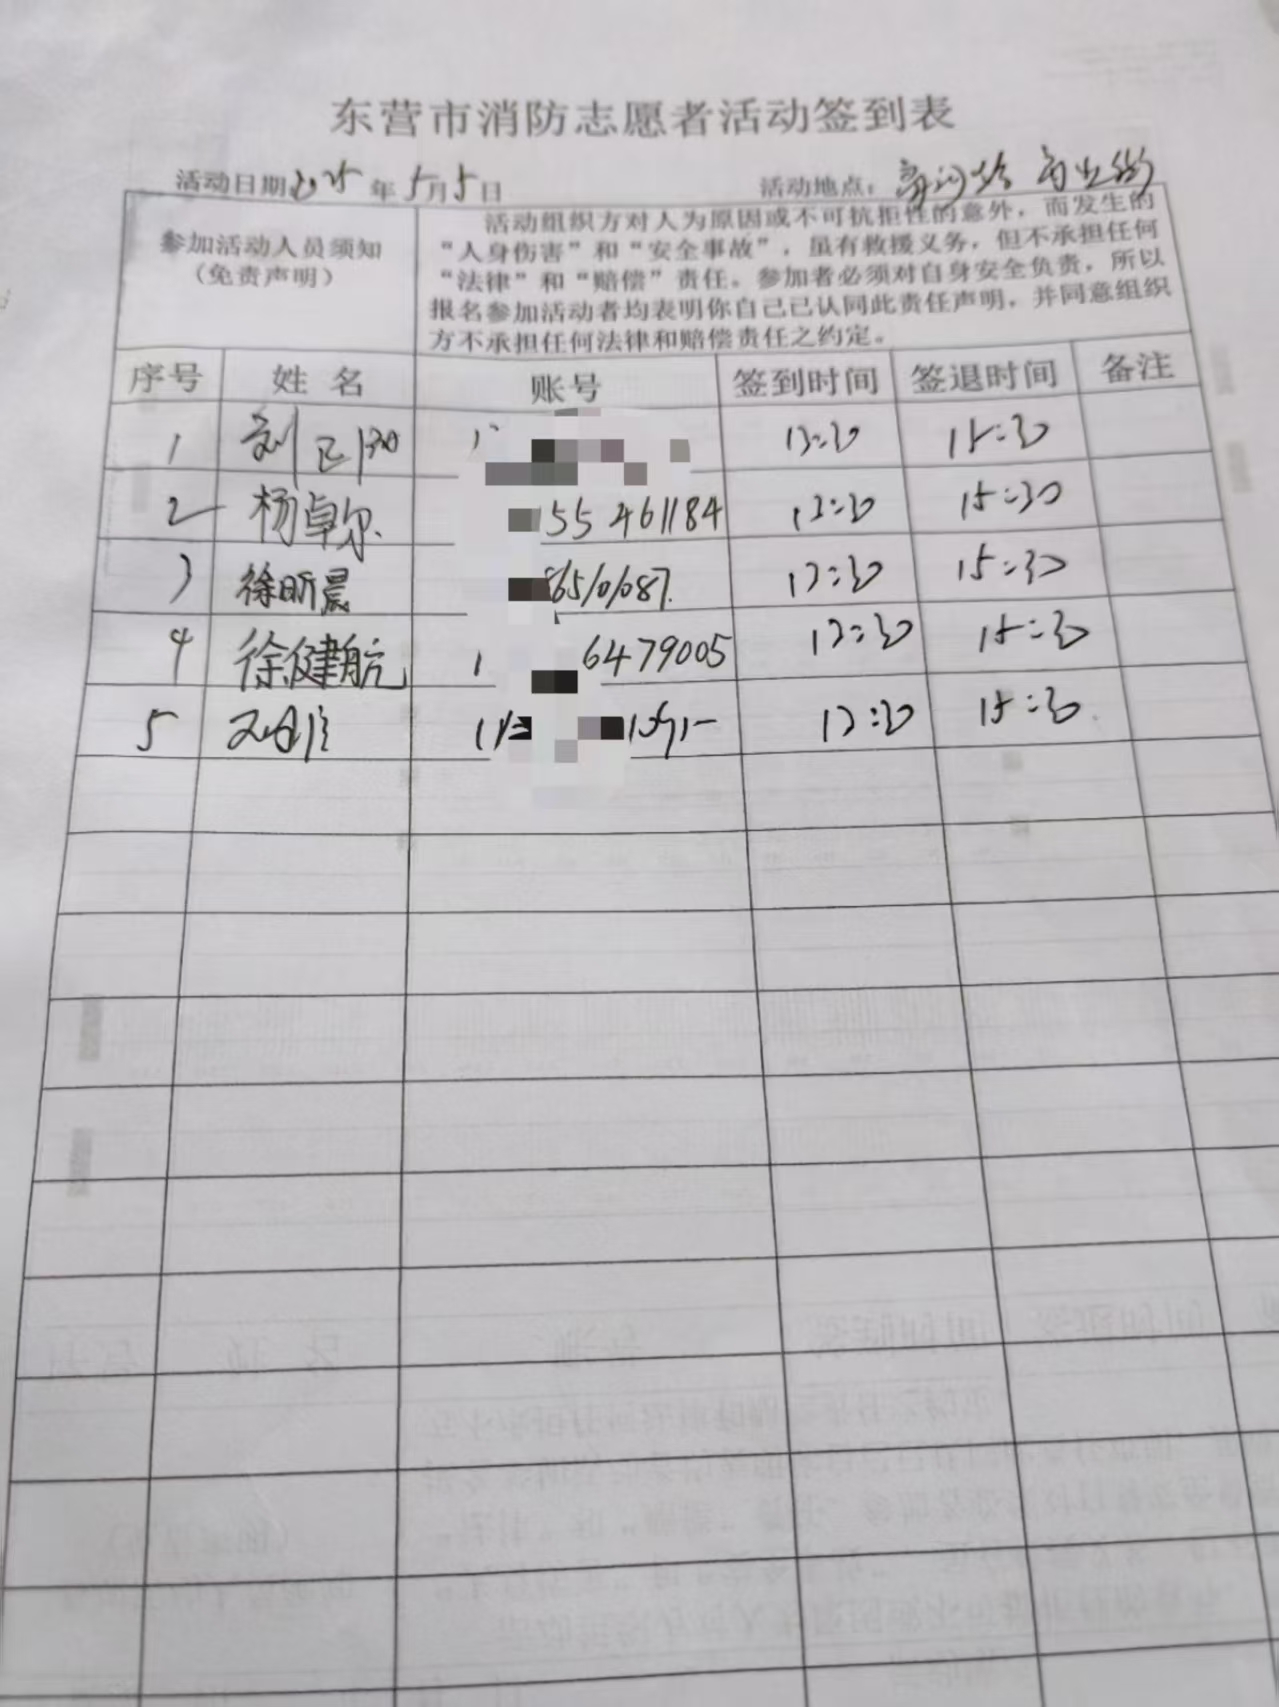 东营市消防志愿者活动签到表
活动日期2025年5月5日 活动地点：商业街
参加活动人员须知
（免责声明）
活动组织方对人为原因或不可抗拒性的意外，而发生的
“人身伤害”和“安全事故”，虽有救援义务，但不承担任何
“法律”和“赔偿”责任。参加者必须对自身安全负责，所以
报名参加活动者均表明你自己已认同此责任声明，并同意组织
方不承担任何法律和赔偿责任之约定。
序号 姓名 账号 签到时间 签退时间 备注
1 刘 13:30 15:30
2 杨卓尔 55461184 13:30 15:30
3 徐昕晨 86510687. 13:30 15:30
4 徐健航 1 6479005 13:30 15:30
5 13:30 15:30